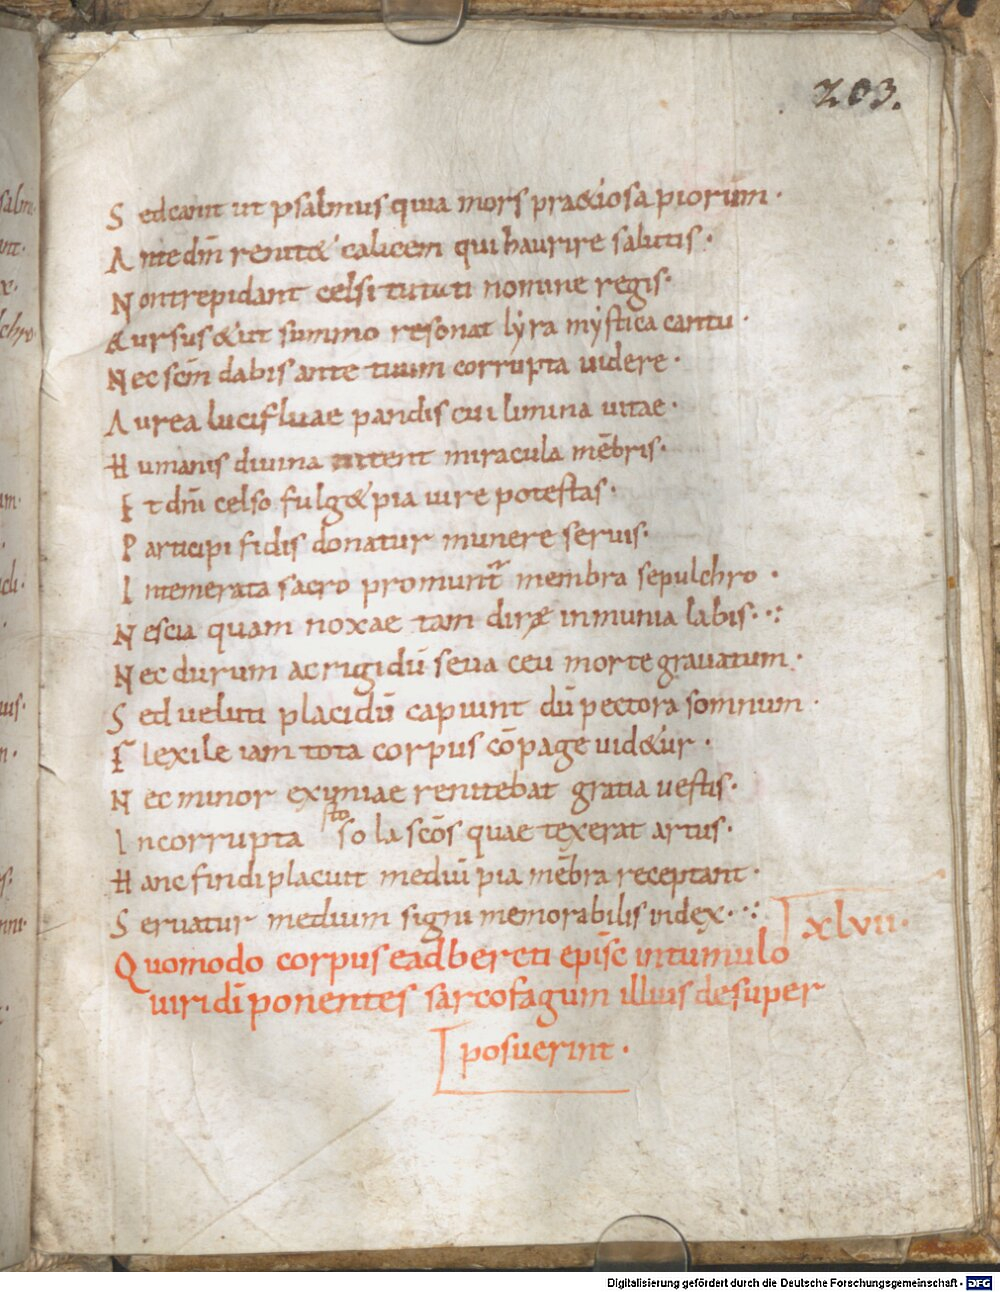 203.
S ed canit ut psalmus quia mors pra&iosa piorum·
A nte dm̄ renit& calicem qui haurire salutis·
N on trepidant celsi tututi nomine regis·
& ursus & ut summo resonat lẏra mẏstica cantu·
N ec scm̄ dabis ante tuum corrupta uidere·
A urea lucifluae pandis cui limina uitae·
H umanis diuina nitent miracula mēbris·
E t dn̄i celso fulg& pia iure potestas·
P articipi fidis donatur munere seruis·
I ntemerata sacro promunt membra sepulchro·
N escia quam noxae tam diræ inmunia labis·.·
N ec durum ac rigidū seua ceu morte grauatum·
S ed ueluti placidū capiunt dū pectora somnum·
F lexile iam tota corpus cōpage uid&ur·
N ec minor eximiae renitebat gratia uestis·
I ncorrupta sto so la scōs quae texerat artus·
H anc findi placuit mediū pia mēbra receptant·
S eruatur medium signi memorabilis index·.·
xlvii·
Q uomodo corpus eadbercti epīsc in tumulo
uiri dī ponentes sarcofagum illius desuper
posuerint·
Digitalisierung gefördert durch die Deutsche Forschungsgemeinschaft - DFG